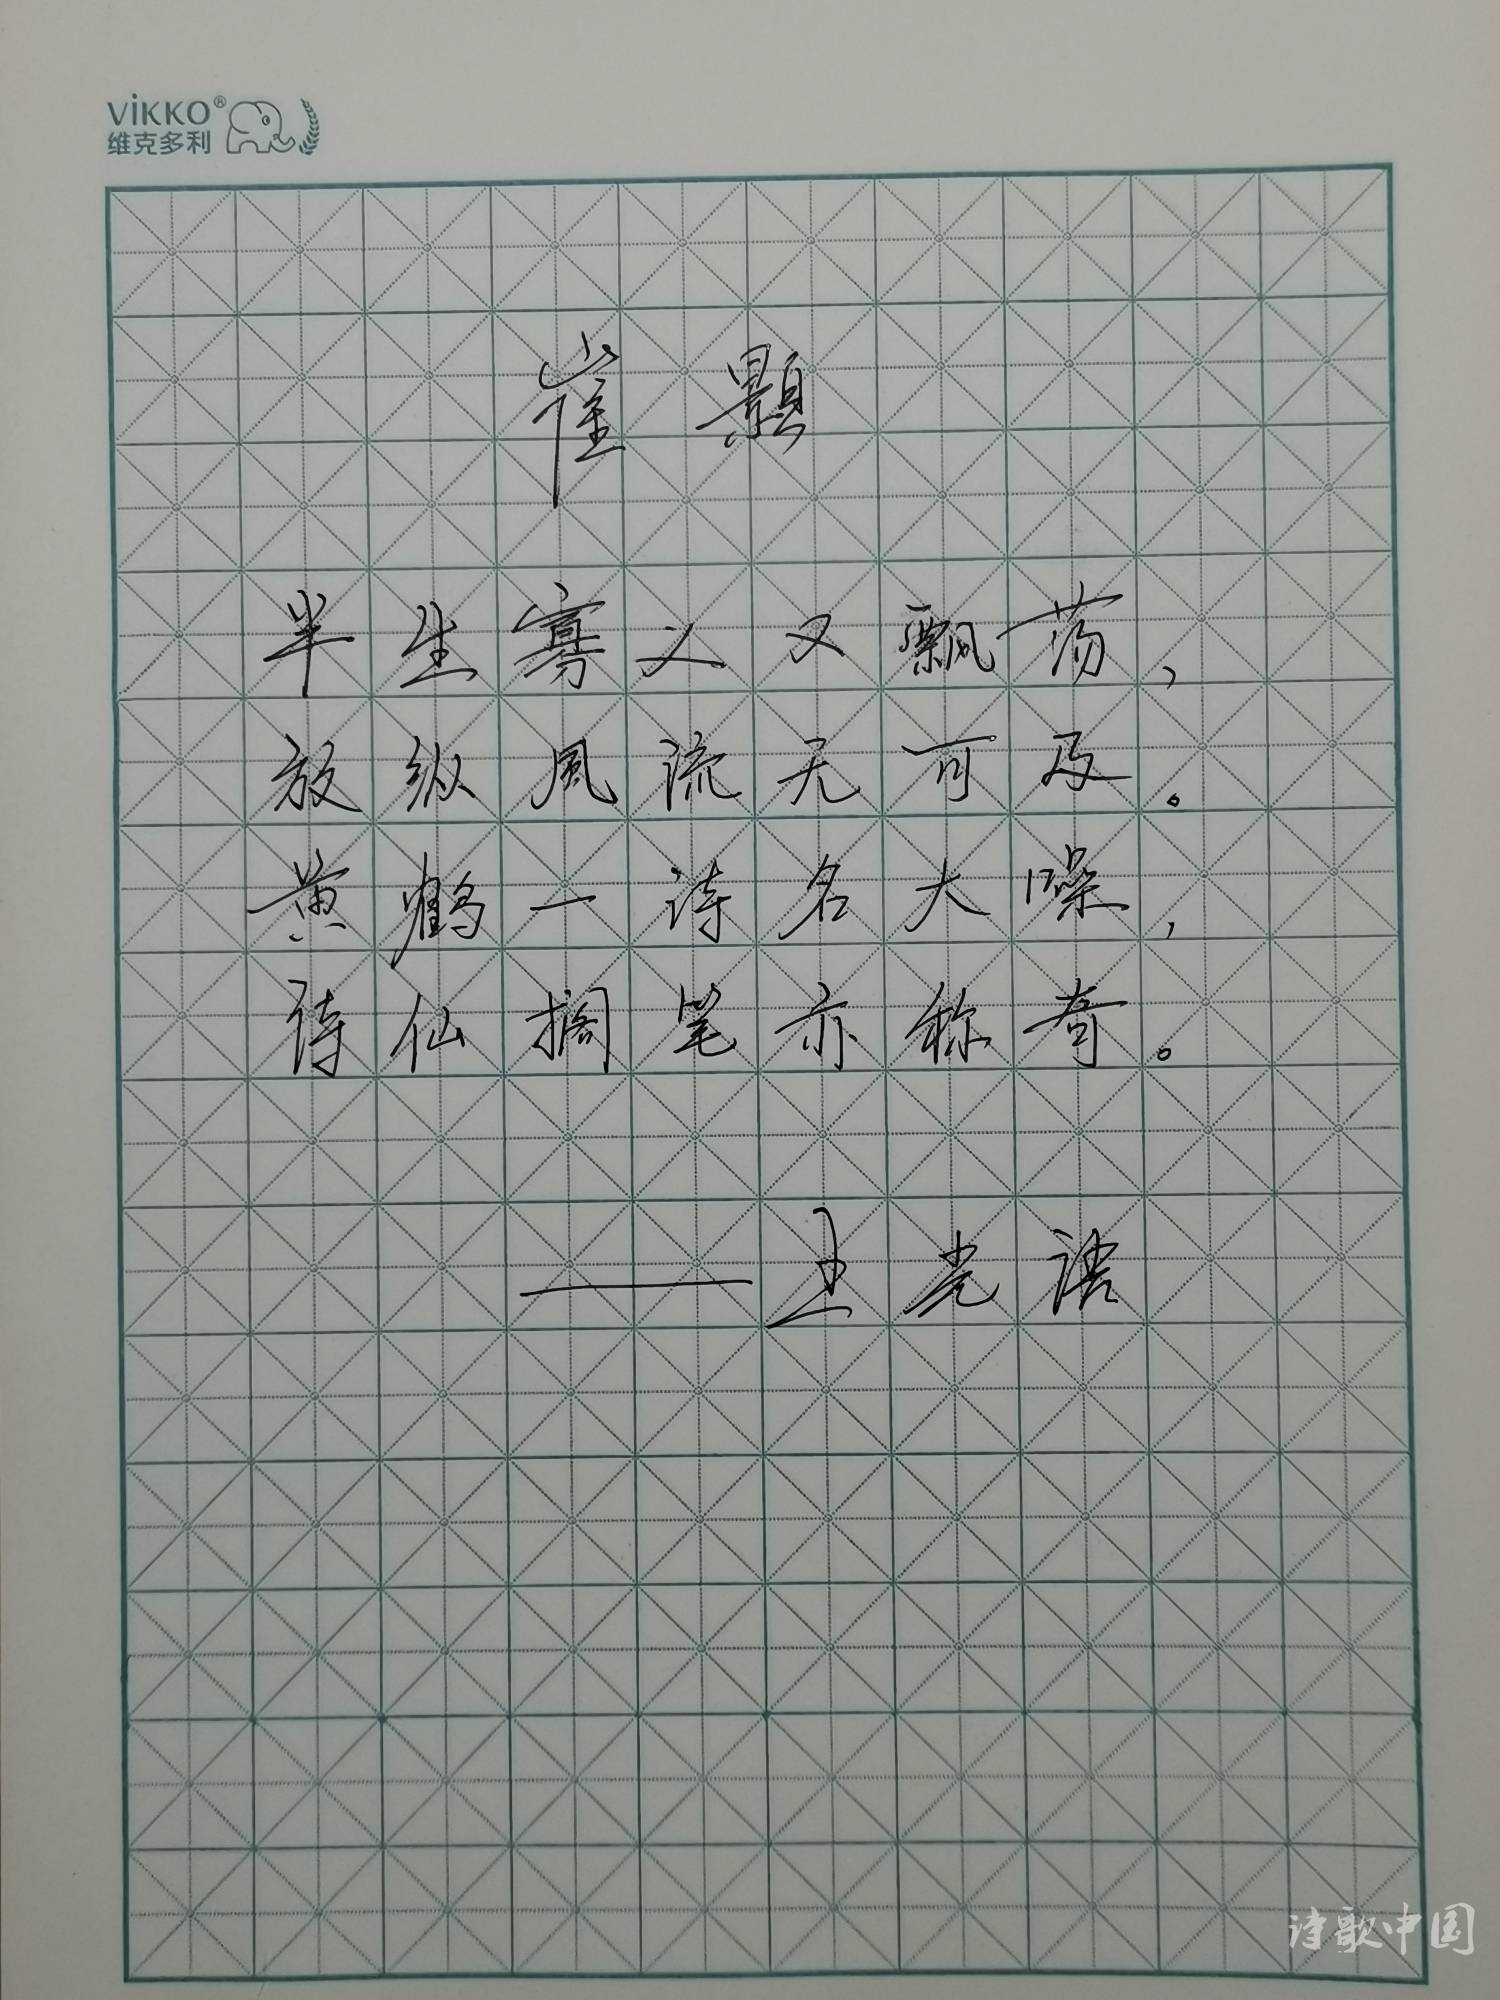 ViKKO®
维克多利
崔颢
半生寡义又飘荡，
放纵风流无可及。
黄鹤一诗名大噪，
诗仙搁笔亦称奇。
——王光语
诗歌中国